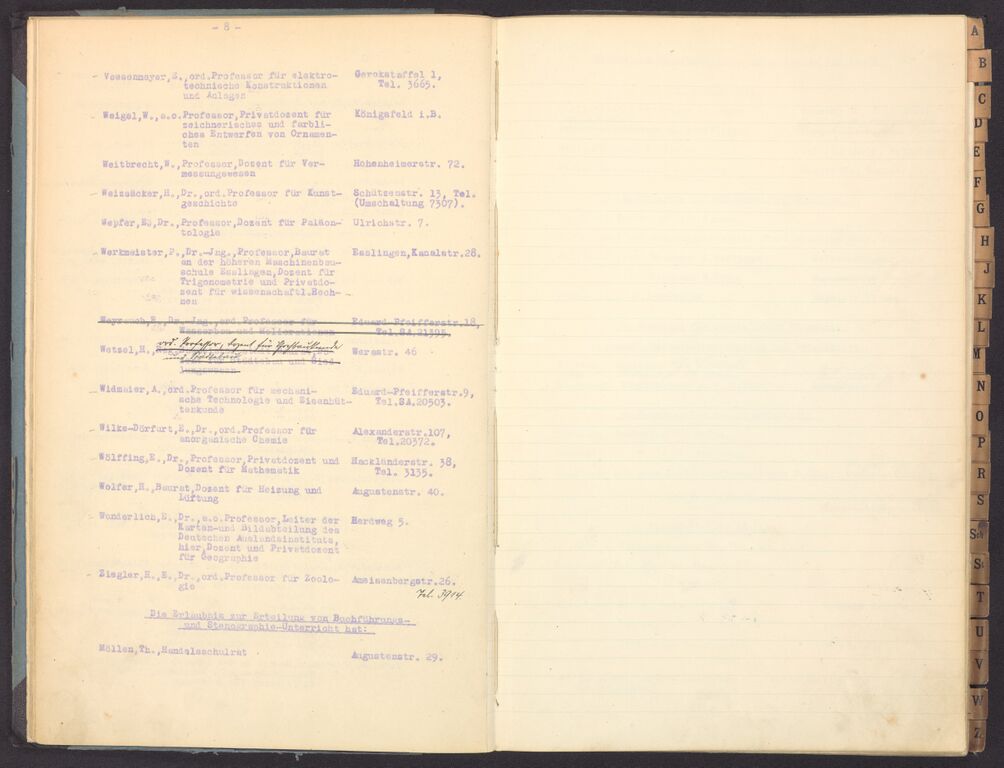 - 8 -
Veesenmeyer, E., ord. Professor für elektro- Gerokstaffel 1,
technische Konstruktionen Tel. 3665.
und Anlagen
Weigel, W., a.o. Professor, Privatdozent für Königsfeld i.B.
zeichnerisches und farbli-
ches Entwerfen von Ornamen-
ten
Weitbrecht, W., Professor, Dozent für Ver- Hohenheimerstr. 72.
messungswesen
Weizsäcker, H., Dr., ord. Professor für Kunst- Schützenstr. 13, Tel.
geschichte (Umschaltung 7307).
Wepfer, E., Dr., Professor, Dozent für Paläon- Ulrichstr. 7.
tologie
Werkmeister, P., Dr.-Jng., Professor, Baurat Esslingen, Kanalstr. 28.
an der höheren Maschinenbau-
schule Esslingen, Dozent für
Trigonometrie und Privatdo-
zent für wissenschaftl. Rech-
nen
Weyrauch, R., Dr.-Jng., ord. Professor für Eduard-Pfeifferstr. 18,
Wasserbau und Meliorationen Tel. SA. 21395.
ord. Professor, Dozent für Hochbaukunde
Wetzel, H., Werastr. 46
und Städtebau für Städtebau und Sied-
lungswesen
Widmaier, A., ord. Professor für mechani- Eduard-Pfeifferstr. 9,
sche Technologie und Eisenhüt- Tel. SA. 20503.
tenkunde
Wilke-Dörfurt, E., Dr., ord. Professor für Alexanderstr. 107,
anorganische Chemie Tel. 20372.
Wölffing, E., Dr., Professor, Privatdozent und Hackländerstr. 38,
Dozent für Mathematik Tel. 3135.
Wolfer, H., Baurat, Dozent für Heizung und Augustenstr. 40.
Lüftung
Wunderlich, E., Dr., a.o. Professor, Leiter der Herdweg 5.
Karten-und Bildabteilung des
Deutschen Auslandsinstituts,
hier Dozent und Privatdozent
für Geographie
Ziegler, H., E., Dr., ord. Professor für Zoolo- Ameisenbergstr. 26.
gie Tel. 3904
Die Erlaubnis zur Erteilung von Buchführungs-
und Stenographie-Unterricht hat:
Möllen, Th., Handelsschulrat Augustenstr. 29.
A
B
C
D
E
F
G
H
J
K
L
M
N
O
P
R
S
Sch
St
T
U
V
W
Z